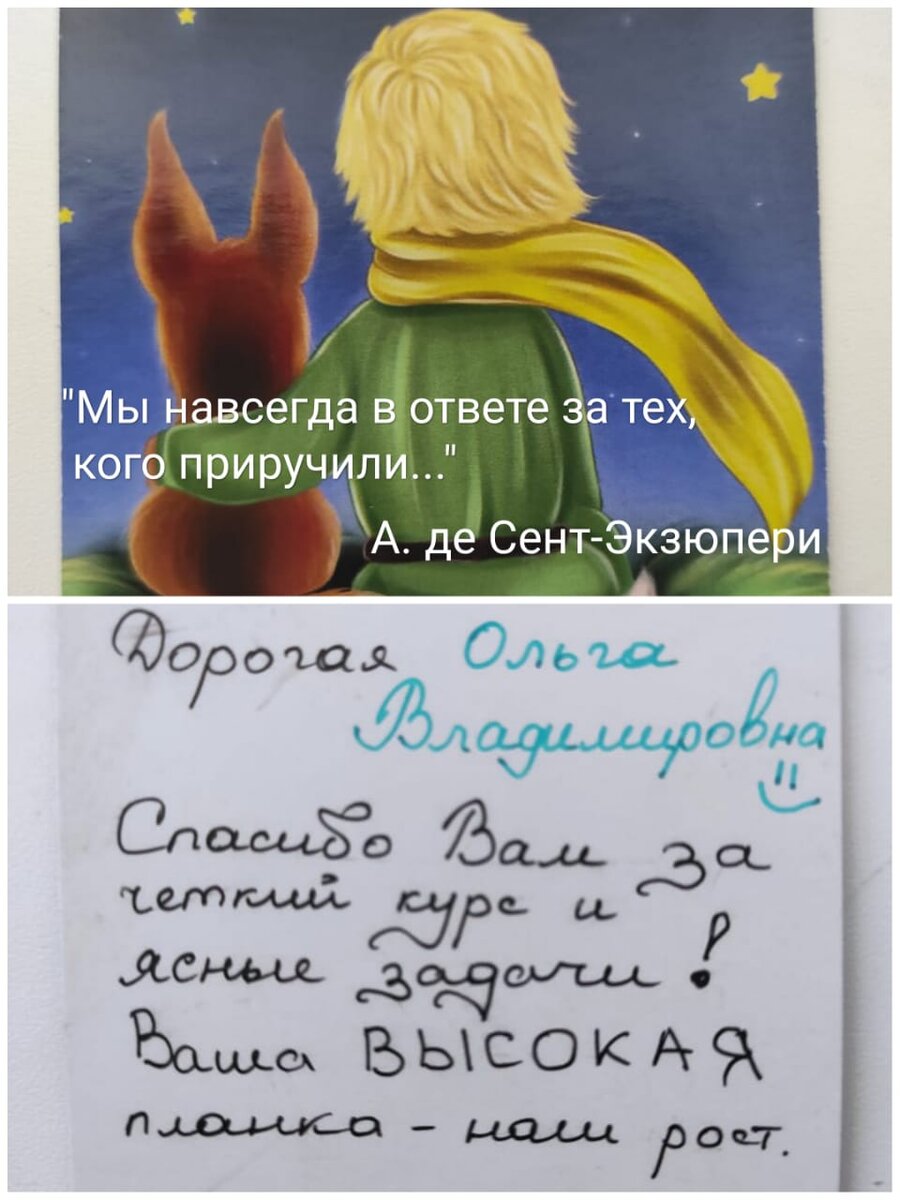 "Мы навсегда в ответе за тех,
кого приручили..."
А. де Сент-Экзюпери
Дорогая Ольга
Владимировна
Спасибо Вам за
четкий курс и
ясные задачи!
Ваша ВЫСОКАЯ
планка - наш рост.